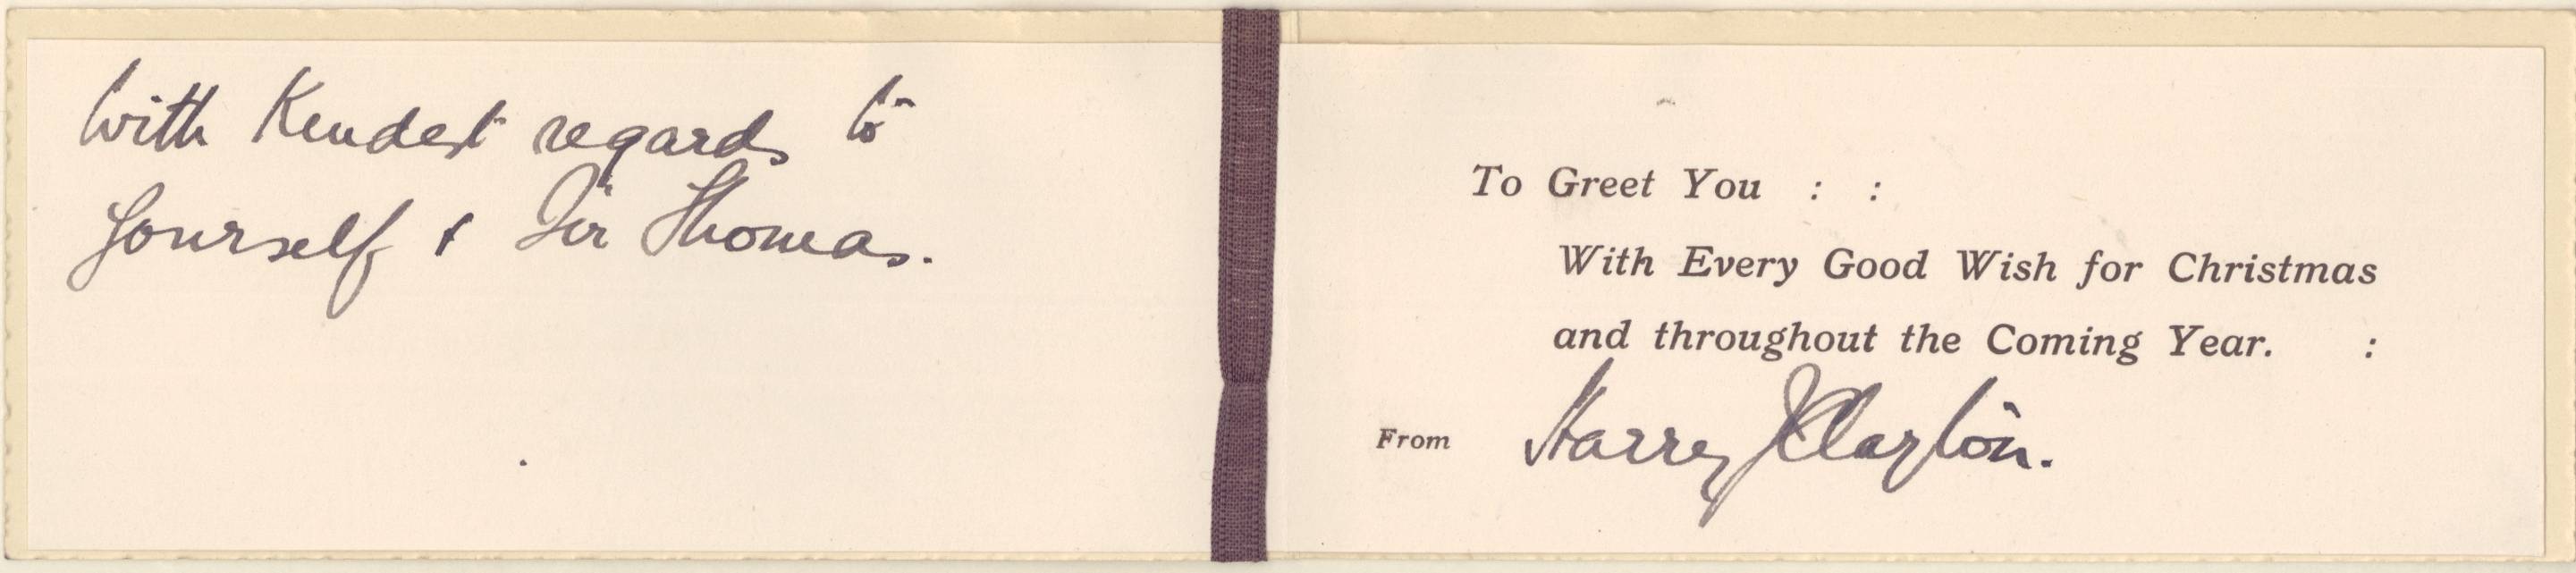 With Kindest regards to
yourself & Sir Thomas.
To Greet You : :
With Every Good Wish for Christmas
and throughout the Coming Year. :
From Harry J Clayton.